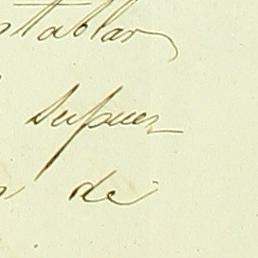 ntablar
supues-
de